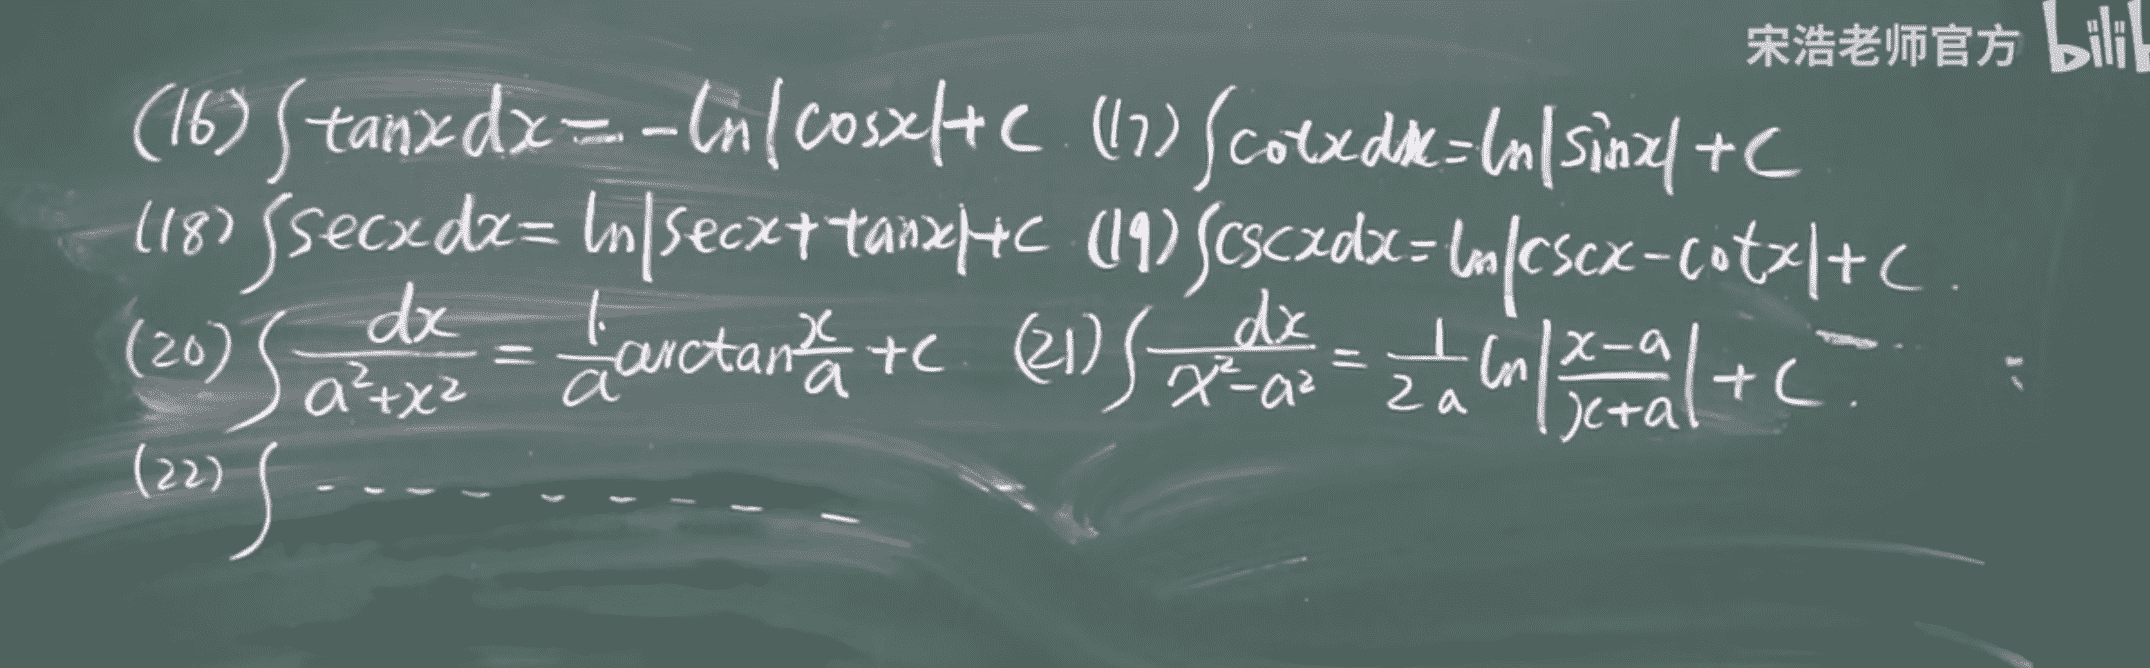 宋浩老师官方 bilib
(16) ∫tanxdx = -ln|cosx|+C. (17) ∫cotxdx=ln|sinx|+C
(18) ∫secxdx= ln|secx+tanx|+C (19) ∫cscxdx=ln|cscx-cotx|+C.
(20) ∫dx/(a²+x²) = 1/a arctan x/a +C. (21) ∫dx/(x²-a²) = 1/(2a) ln|(x-a)/(x+a)|+C.
(22) ∫ - - - - - - - - -